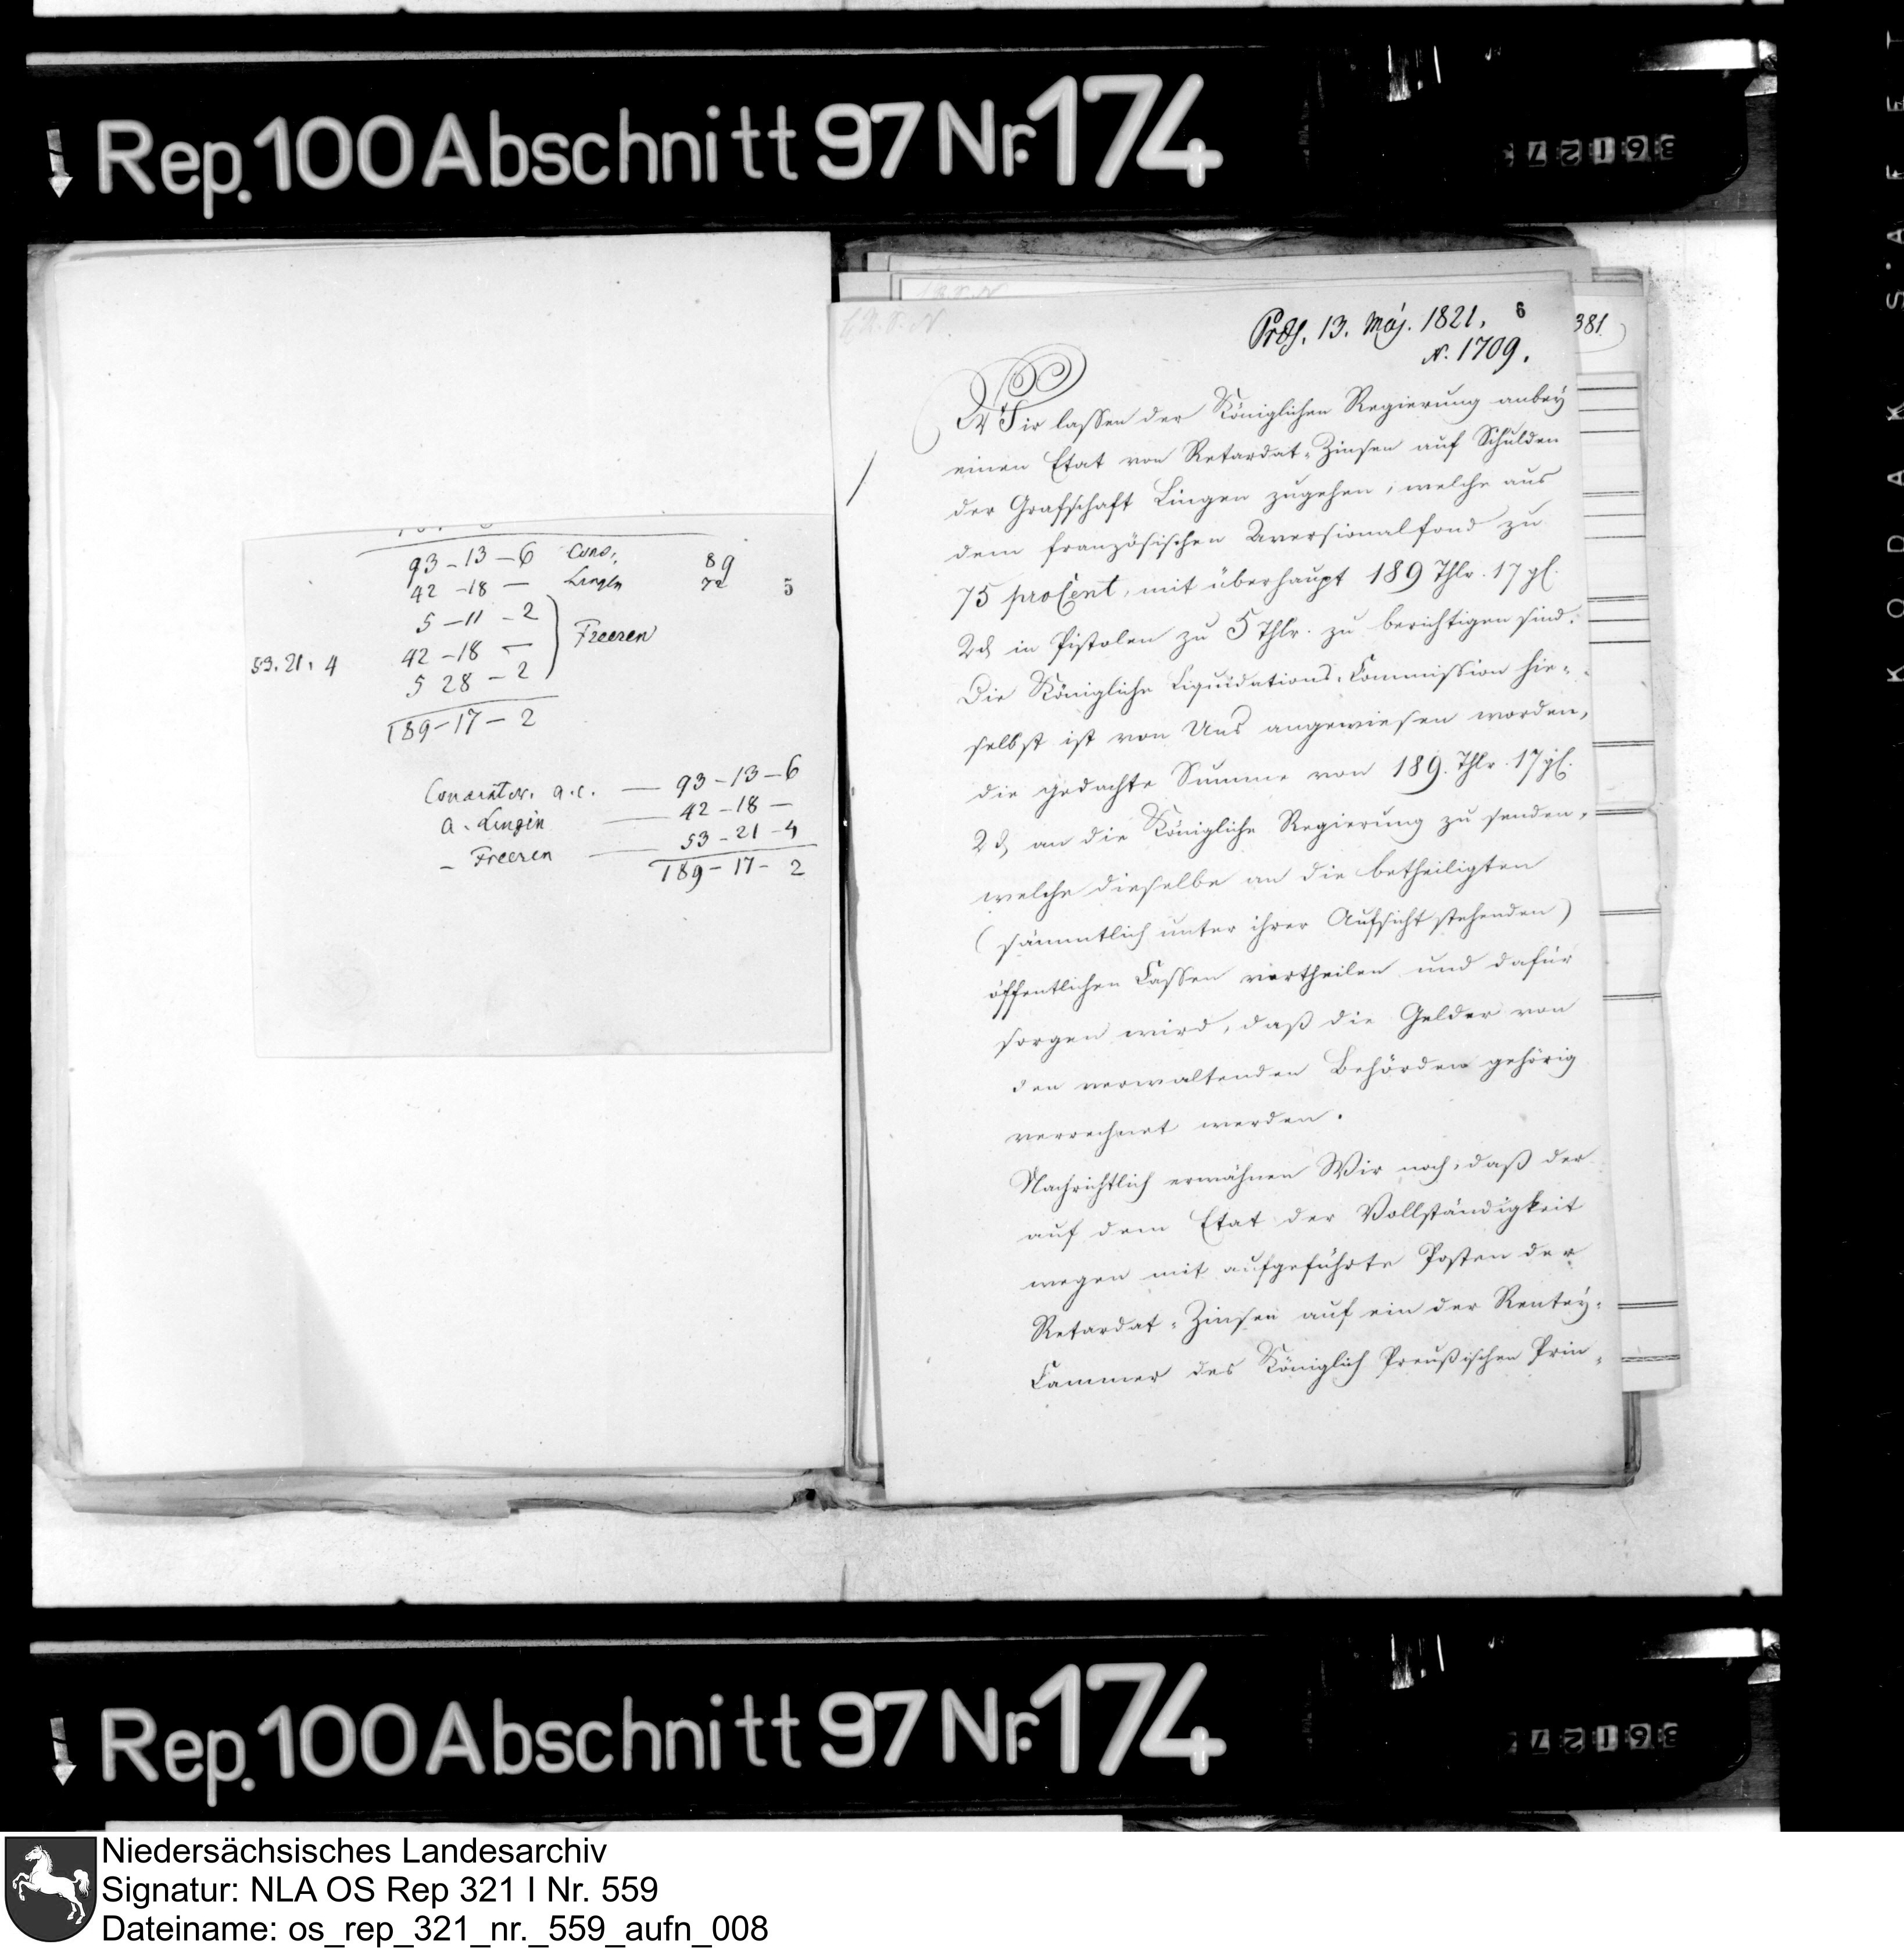 Rep. 100 Abschnitt 97 Nr. 174
36127
93-13-6 Cons. 89
42-18 — Lingen 72 5
5-11-2
42-18 — Freeren
53. 21. 4
5 28-2
189-17-2
a. c. — 93-13-6
a. Lingen — 42-18 —
- Freeren — 53-21-4
189-17-2
381
Präs. 13. Maj. 1821. 6
N. 1709.
Wir lassen der Königlichen Regierung anbey
einen Etat von Retardat-Zinsen auf Schulden
der Grafschaft Lingen zugehen, welche aus
dem französischen Aversionalfond zu
75 proCent, mit überhaupt 189 Thlr. 17 gl.
2 d in Pistolen zu 5 Thlr. zu berichtigen sind.
Die Königliche Liquidations-Commission hie-
selbst ist von Uns angewiesen worden,
die gedachte Summe von 189. Thlr. 17 gl.
2 d, an die Königliche Regierung zu senden,
welche dieselbe an die betheiligten
(sämmtlich unter ihrer Aufsicht stehenden)
öffentlichen Cassen vertheilen und dafür
sorgen wird, daß die Gelder von
den verwaltenden Behörden gehörig
verrechnet werden.
Nachrichtlich erwähnen Wir noch, daß der
auf dem Etat der Vollständigkeit
wegen mit aufgeführte Posten der
Retardat-Zinsen auf ein der Rentey-
Cammer des Königlich Preußischen Prin-
Rep. 100 Abschnitt 97 Nr. 174
36127
KODAK SAFET
Niedersächsisches Landesarchiv
Signatur: NLA OS Rep 321 I Nr. 559
Dateiname: os_rep_321_nr._559_aufn_008